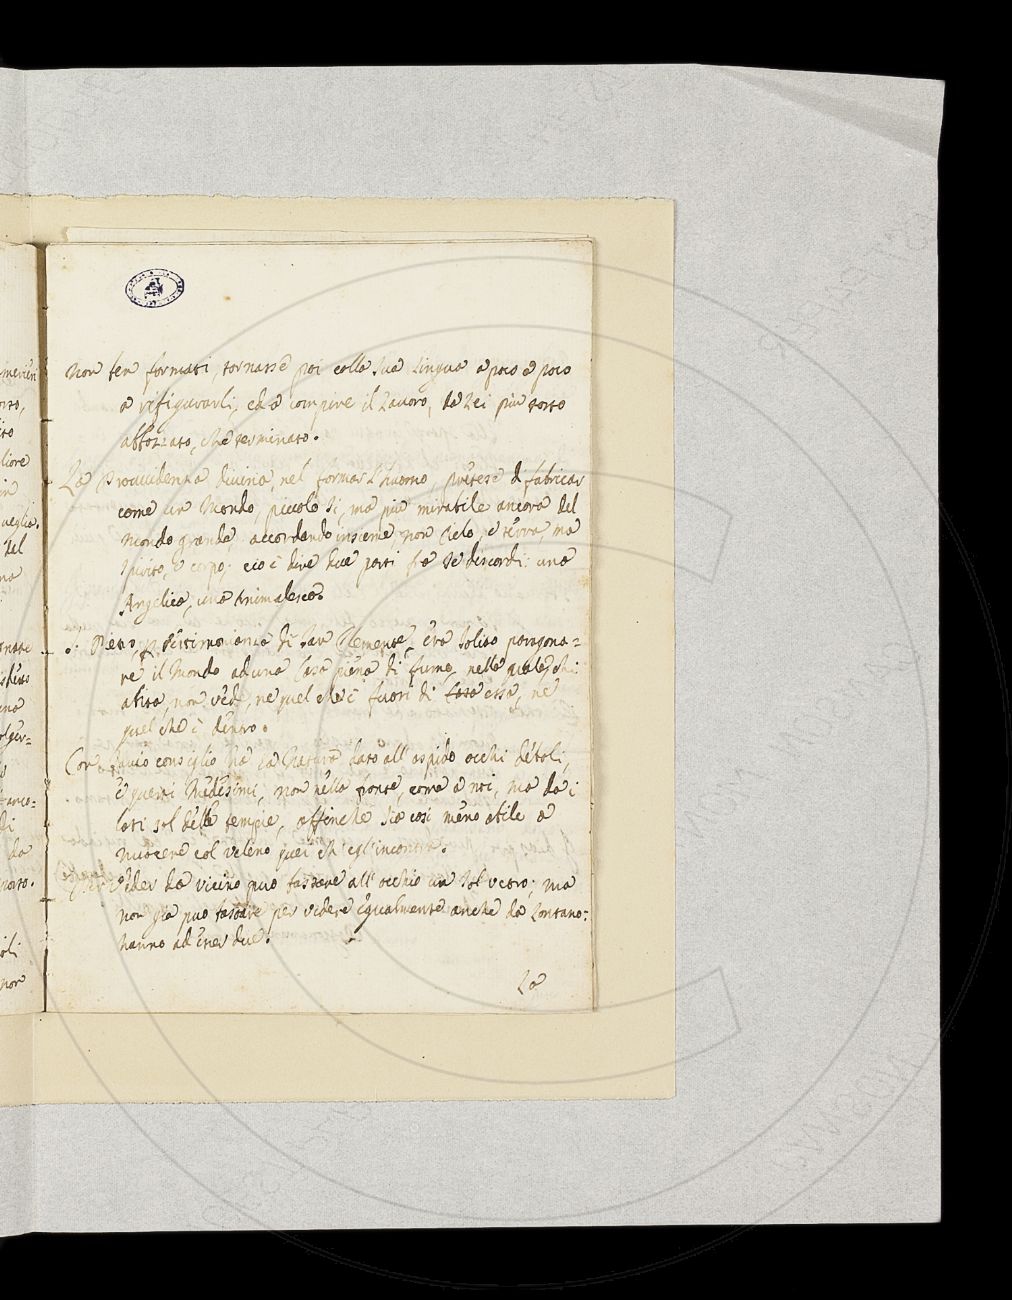 non ben formati, tornasse poi colla sua lingua a poco a poco
a rifigurarli, ed a compire il Lauoro, da Lei più tosto
abbozzato, che terminato.
La Prouuidenza diuina, nel formar l'huomo, pretese di fabricar
come un Mondo, piccolo sì, ma più mirabile ancora del
Mondo grande, accordando insieme, non Cielo, e terra, ma
spirito, e corpo; ciò è dire due parti fra se discordi: una
Angelica, una Animalesca.
S. Pietro, per testimonianza di San Clemente, era solito paragona=
re il Mondo ad una Casa piena di fumo, nella quale chi
abita, non vede, ne quel che è fuori di casa essa, ne
quel che è dentro.
Con sauio consiglio ha la Natura dato all'aspido occhi deboli,
e questi medesimi, non nella fronte, come a noi, ma da i
lati sol delle tempie, affinche sia così meno abile a
nuocere col veleno quei ch'egl'incontra.
Per veder da vicino può bastare all'occhio un sol vetro; ma
non già può bastare per vedere egualmente anche da Lontano:
hanno ad esser due.
La
meric
orso,
ito
gliore
in
ueglia.
del
na
onare
una
olger=
di
da
porto.
oli
non